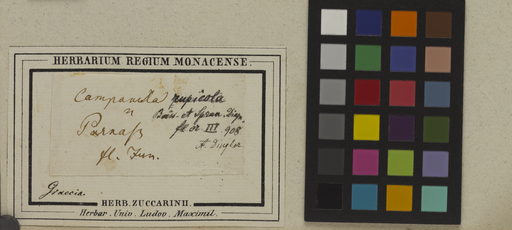 HERBARIUM REGIUM MONACENSE.
Campanula rupicola
Boiss. et Sprun. Diagn.
n
Parnaß
fl or III. 908
fl. Jun.
Graecia.
HERB. ZUCCARINII.
Herbar. Univ. Ludov. Maximil.